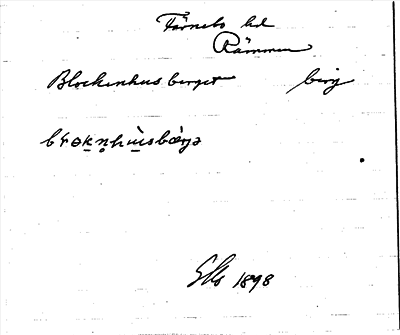 Färnebo hd
Rämmen
Blockenhusberget berg
bⱡɵkn̥hùsbærjə
1898